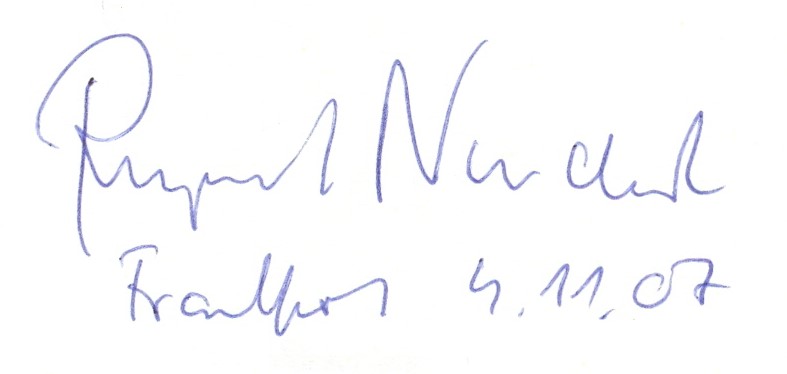 Rupert Neudeck
Frankfurt 4.11.07